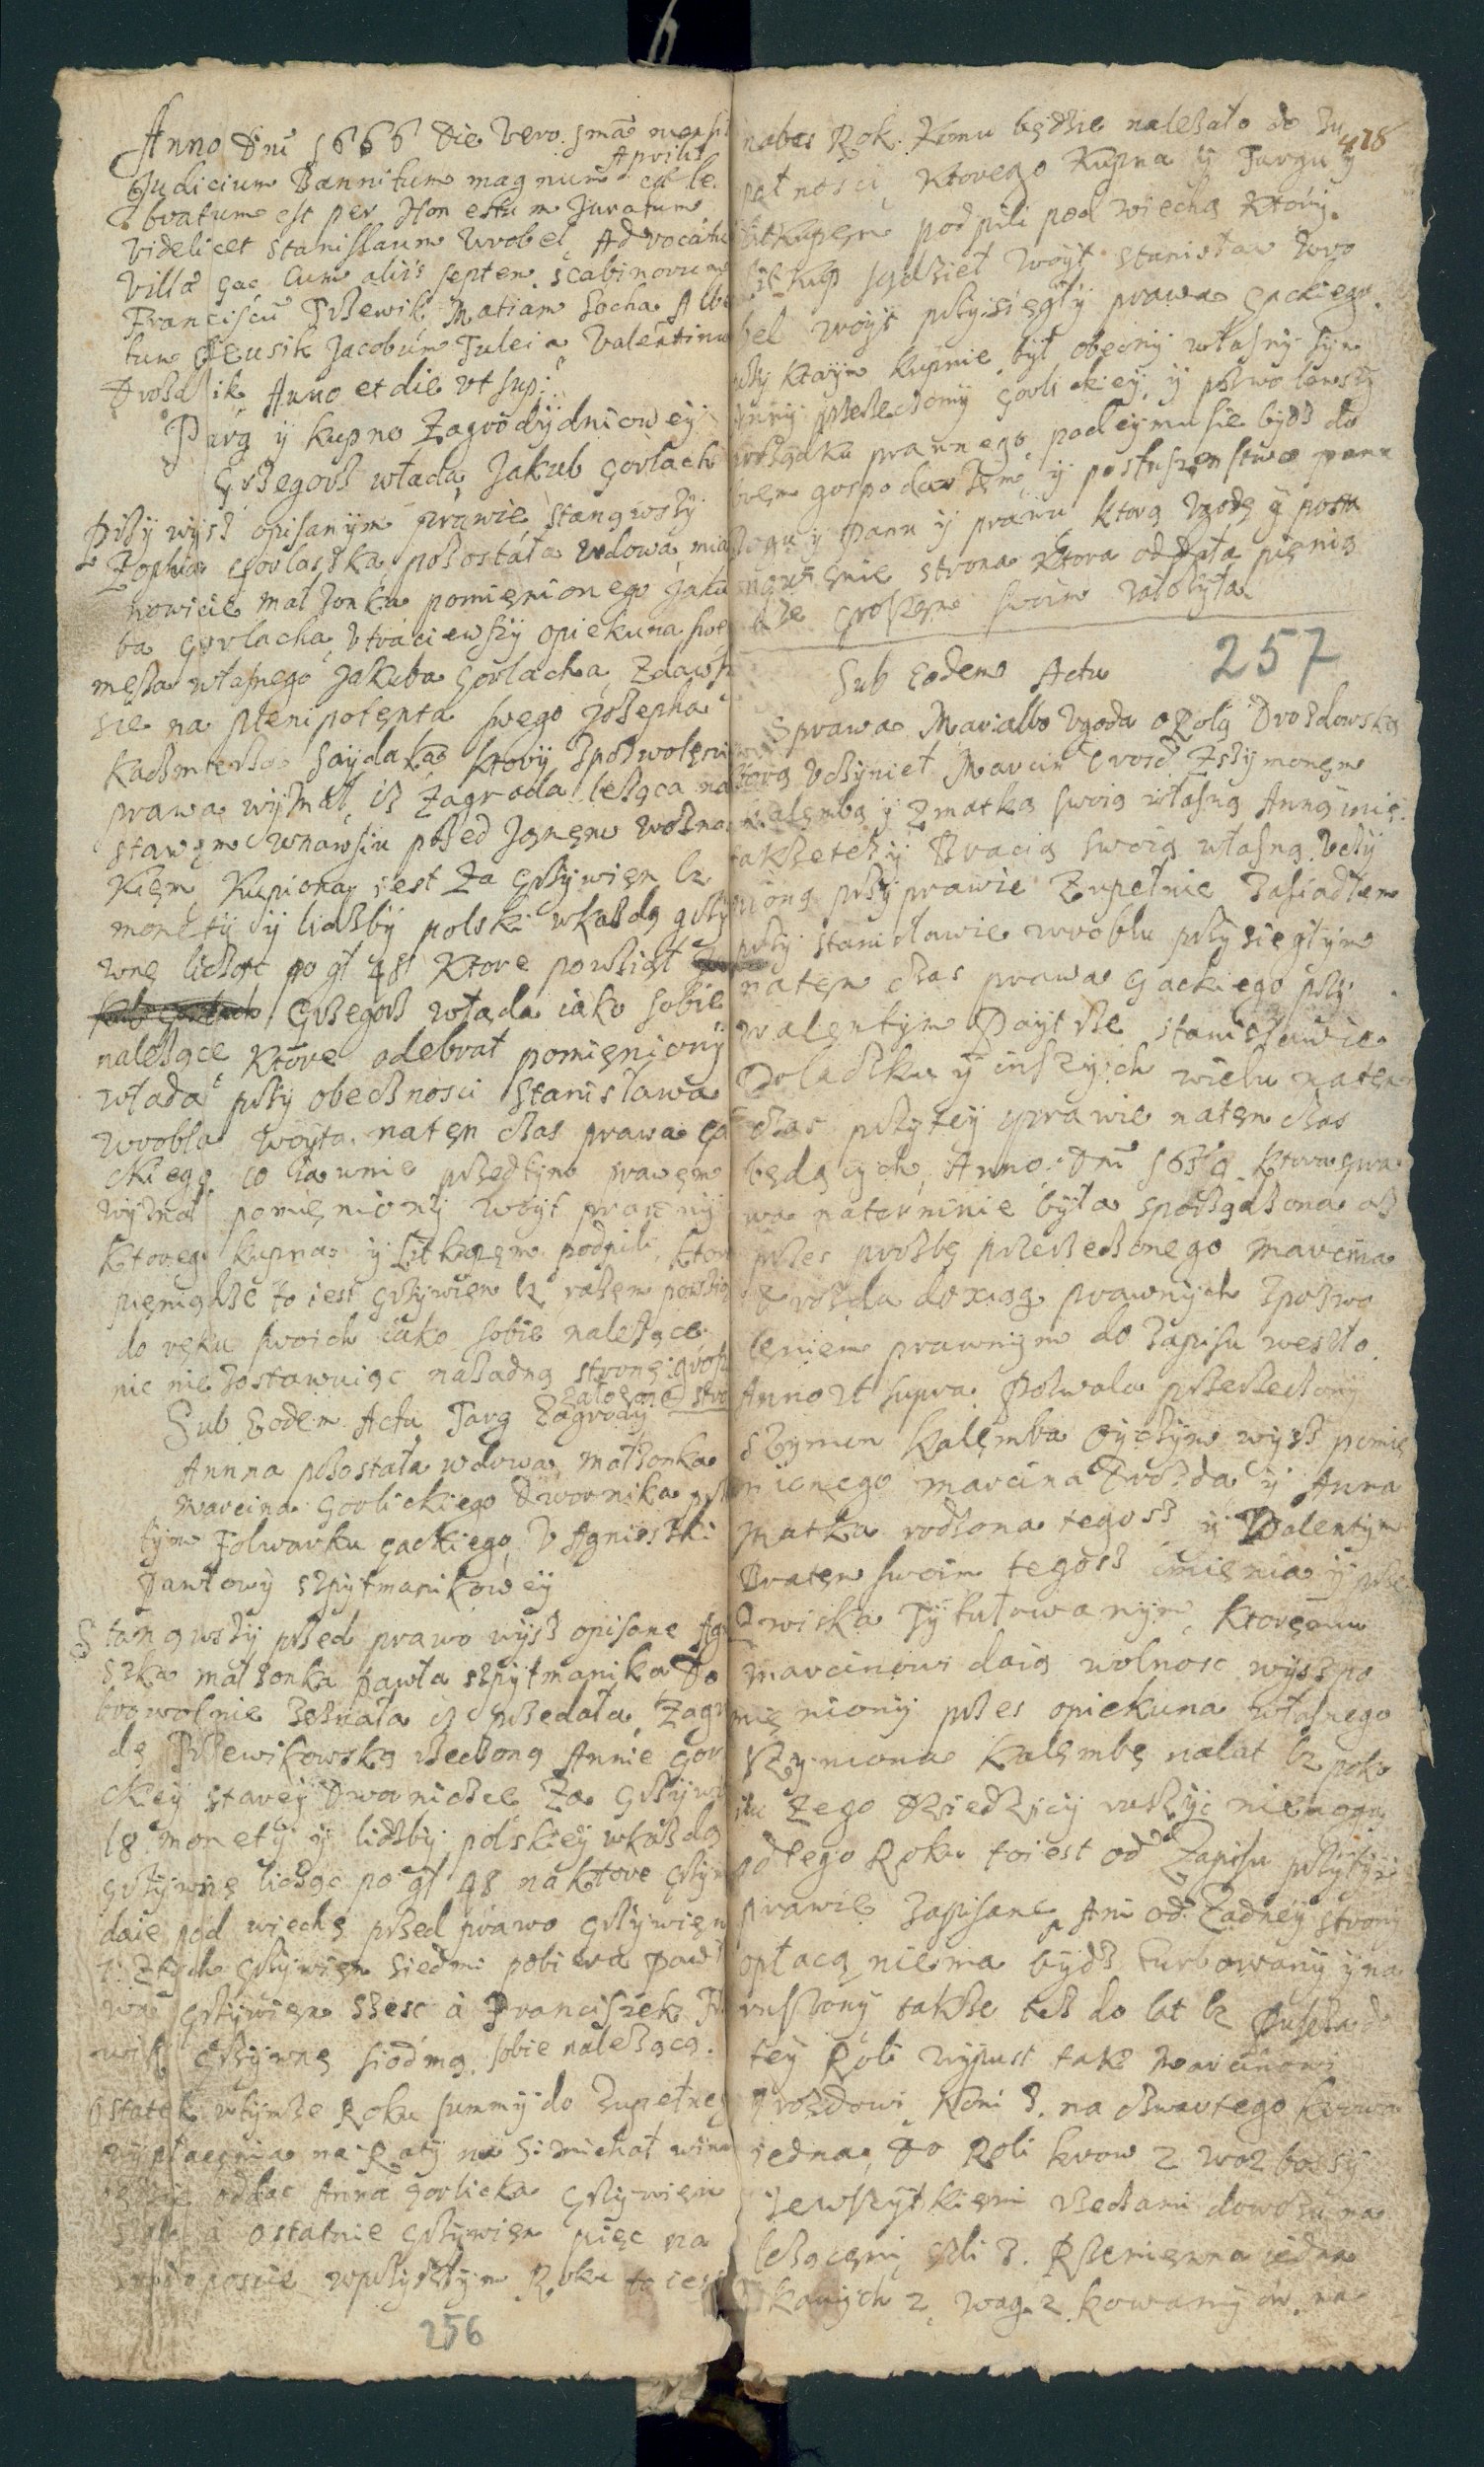 Anno Dni 1666 Die Vero 5ma mensis
Aprilis
Judicium Bannitum magnum cele
bratum est per Honestum Juratum
Videlicet Stanislaum Wrobel Advocatu
Villæ Gac Cum aliis septem Scabinorum
Franciscu Trzewik Matiam Socha Albe
tum Jacobum Tuleia Valentinu
Anno et die ut sup:
Targ y kupno Zagrody
Grzegorz włada Jakub Gorlach
Przy wysz opisanym prawie stanąwszy
Zophia Gorlaszka pozostała wdowa mia
nowicie małżonka pomięnionego Jaku
ba Gorlacha utraciewszy opiekuna swe
męża własnego Jakuba Gorlacha zdawsz
sie na plenipotęnta swego Jozepha
Saydaka ktory zpozwolęni
prawa wyznał isz Zagroda leżąca na
stawęm wnawsiu przed Woźna
Kięm Kupiona jest Za grzywięn 12
monety y lidzby polski wkażdą grzy
wnę lidżąc po gł 48 ktore powziął
Grzegorz włada iako sobie
należące ktore odebrał pomięniony
włada przy obecznosci Stanisława
wrobla woyta natęn czas prawa ga
ckiego co iawnie przedtym prawęm
wyznał pomięniony woyt prawny
ktorego kupna y litkupęm podpili ktor
pięniądze to iest grzywien 12 razem powzią
do ręku swoich iako sobie należące
nic niezostawuiąc nażadną stronę grosz
założone stro
Sub Eodem Actu Targ Zagrody
Annna pozostała wdowa małżonka
Marcina Gorlickiego Dwornika prze
tym Folwarku gackiego U Agniszki
Pawłowy szpytmanikowey
Stanąwszy przed prawo wysz opisane Agn
szka małżonka Pawła szpytmanika Do
browolnie zeznała isz przedała Zagro
dę Trzewikowską rzeczoną Annie Gor
ckiey starey Dworniczce Za Grzyw
18 monety y lidzby polskiey wkażdą
grzywnę lidżąc po gł 48 naktore grzyw
daie pod wiechę przed prawo grzywięn
7 Ztych grzywięn siedmi pobiera Paw
wa grzywięn szesc à Franciszek Tr
wik grzywnę siodmą sobie należącą
Ostatek wtymże Roku summy do zupełneg
wypłacęnia na Raty na S: Michał winn
będzie oddac Anna Gorlicka grzywięn
à ostatnie grzywien pięc na
poscie wprzyszłym Roku to iest
256
nabes Rok. komu będzie należało do Zu
418
pełnosci ktorego kupna y Targu y
litkupęm podpili pod wiechą ktory
litkup sądzieł Woyt Stanisław Wro
bel woyt przysięgły prawa gackiego
przy ktorym kupnie był obecny własny syn
Anny przerzeczony Gorlickiey y pozwolewszy
porządku prawnego podeymu sie bydz do
brem gospodarzęm y posłuszenstwo pana
Bogu y Panu y prawu ktorą zgodę y posta
nowięnie strona ktora oddała pięnią
dze groszęm swoim założyła
257
Sub Eodem Actu
Sprawa Marialbo Ugoda o Rolą Drozdowską
ktorą Uczynieł Marcin Drozd ZSzymonęm
Kalęmbą y Zmatką swoią własną Anną imię
takżeteż y Bracią swoią własną Uczy
nioną przy prawie Zupełnie Zasiadłem
przy Stanisławie wroblu przysiegłym
natęn czas prawa gackiego przy
walentym Stanisławie
Poladzku y inszych wielu natęn
czas przytey sprawie natęn czas
będących Anno Dni 1659 ktora spra
wa naterminie była sporządzona asz
przes prożbę przerzeczonego Marcina
drozda do xiąg prawnych zpozwo
lęniem prawnym do zapisu weszło
Anno ut supra Pozwala przerzeczony
Szymon Kalęmba Oyczym wysz pomię
nionego Marcina Drozda y Anna
Matka rodzona tegosz y Walentym
Bratem swoim tegosz imięnia y prze
zwiska Tytułowanym ktoręmu
Marcinowi daią wolnosc wyszpo
mięniony przes opiekuna własnego
Szymona Kalęmbę nalat 12 poko
iu Zego Dziedzicy ruszyc niemogą
od tego Roku toiest od Zapisu przytym
prawie zapisane Ani od Żadney strony
opłacą niema bydz turbowany y na
ruszony także tesz do lat 12
tey Roli wypust tak Marcinowi
Drozdowi Koni 3. na czwartego krowa
iedna Do Roli krow 2 woz bossy
zewszytkięmi rzeczami dowozu na
leżącęmi 3. Rzemięnna iedna
kowanych 2 wag 2 kowanych na